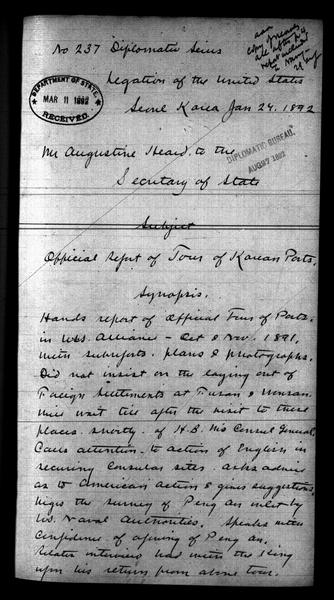 No 237 Diplomatic Series
Legation of the United States
Seoul Korea Jan 24. 1892
DEPARTMENT OF STATE.
MAR 11 1892
RECEIVED.
DIPLOMATIC BUREAU.
1892
Mr Augustine Heard, to the
Secretary of State
Subject
Official Report of Tour of Korean Ports.
Synopsis.
Hands report of Official Tour of Ports.
in U.S.S. Alliance - Oct & Nov. 1891,
with subreports, plans & photographs.
Did not insist on the laying out of
Foreign Settlements at Fusan & Wonsan.
Will wait till after the visit to these
places shortly of H.B. M's Consul General.
Calls attention to action of English in
securing Consular sites. asks advice
as to American action & gives suggestions.
Urges the survey of Peng An inlet by
U.S. Naval authorities. Speaks with
confidence of opening of Peng An.
Relates interview had with the King
upon his return from above tour.